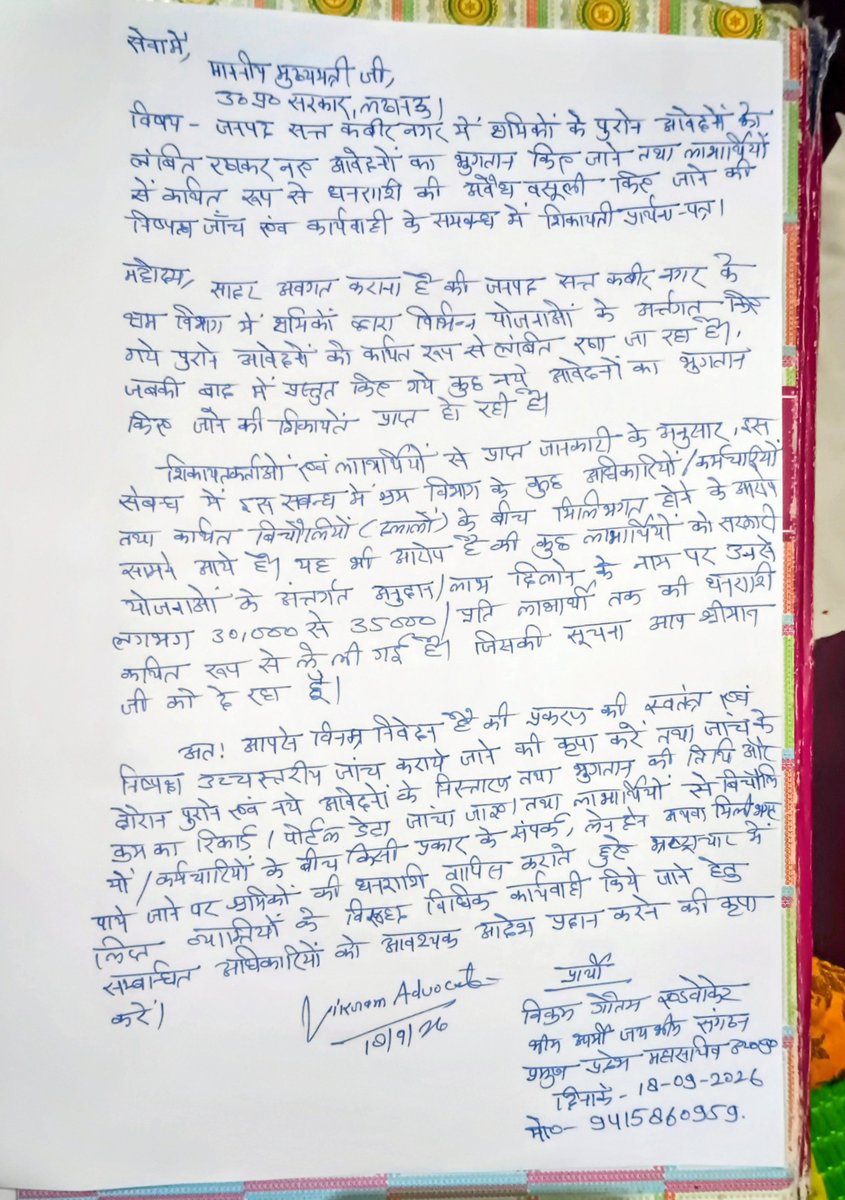 सेवा में,
माननीय मुख्यमंत्री जी,
उ० प्र० सरकार, लखनऊ।
विषय - जनपद सन्त कबीर नगर में श्रमिकों के पुराने आवेदनों को
लंबित रखकर नए आवेदनों का भुगतान किए जाने तथा लाभार्थियों
से कथित रूप से धनराशी की अवैध वसूली किए जाने की
निष्पक्ष जाँच एवं कार्यवाही के सम्बन्ध में शिकायती प्रार्थना-पत्र।
महोदय, सादर अवगत कराना है की जनपद सन्त कबीर नगर के
श्रम विभाग में श्रमिकों द्वारा विभिन्न योजनाओं के अर्न्तगत किए
गये पुराने आवेदनों को कथित रूप से लंबित रखा जा रहा है।,
जबकी बाद में प्रस्तुत किए गये कुछ नये आवेदनों का भुगतान
किए जाने की शिकायतें प्राप्त हो रही है।
शिकायतकर्ताओं एवं लाभार्थियों से प्राप्त जानकारी के अनुसार, इस
संबन्ध में इस सबन्ध में श्रम विभाग के कुछ अधिकारियों/कर्मचारियों
तथा कथित बिचौलियों (दलालों) के बीच मिलिभगत होने के आरोप
सामने आये है। यह भी आरोप है की कुछ लाभार्थियों को सरकारी
योजनाओं के अंन्तर्गत अनुदान/लाभ दिलाने के नाम पर उनसे
लगभग 30,000 से 35000/ प्रति लाभार्थी तक की धनराशी
कथित रूप से ले ली गई है। जिसकी सूचना आप श्रीमान
जी को दे रहा हूँ।
अत! आपसे विनम्र निवेदन है की प्रकरण की स्वतंत्र एवं
निष्पक्ष उच्चस्तरीय जांच कराये जाने की कृपा करें तथा जांच के
दौरान पुराने एवं नये आवेदनों के निस्तारण तथा भुगतान की तिथि और
क्रम का रिकार्ड / पोर्टल डेटा जांचा जाए। तथा लाभार्थियों से बिचौलि
यों/कर्मचारियों के बीच किसी प्रकार के संपर्क, लेन देन अथवा मिलीभगत
पाये जाने पर श्रमिकों की धनराशी वापिस कराते हुए भ्रष्टाचार में
लिप्त व्यक्तियों के विरूद्ध विधिक कार्यवाही किये जाने हेतु
सम्बन्धित अधिकारियों को आवश्यक आदेश प्रदान करने की कृपा
करें।
Vikram Advocate
18/9/26
प्रार्थी
विक्रम गौतम एडवोकेट
भीम आर्मी जय भीम संगठन
प्रमुख प्रदेश महासचिव उ०प्र०
दिनांक - 18-09-2026
मो०- 9415860959.